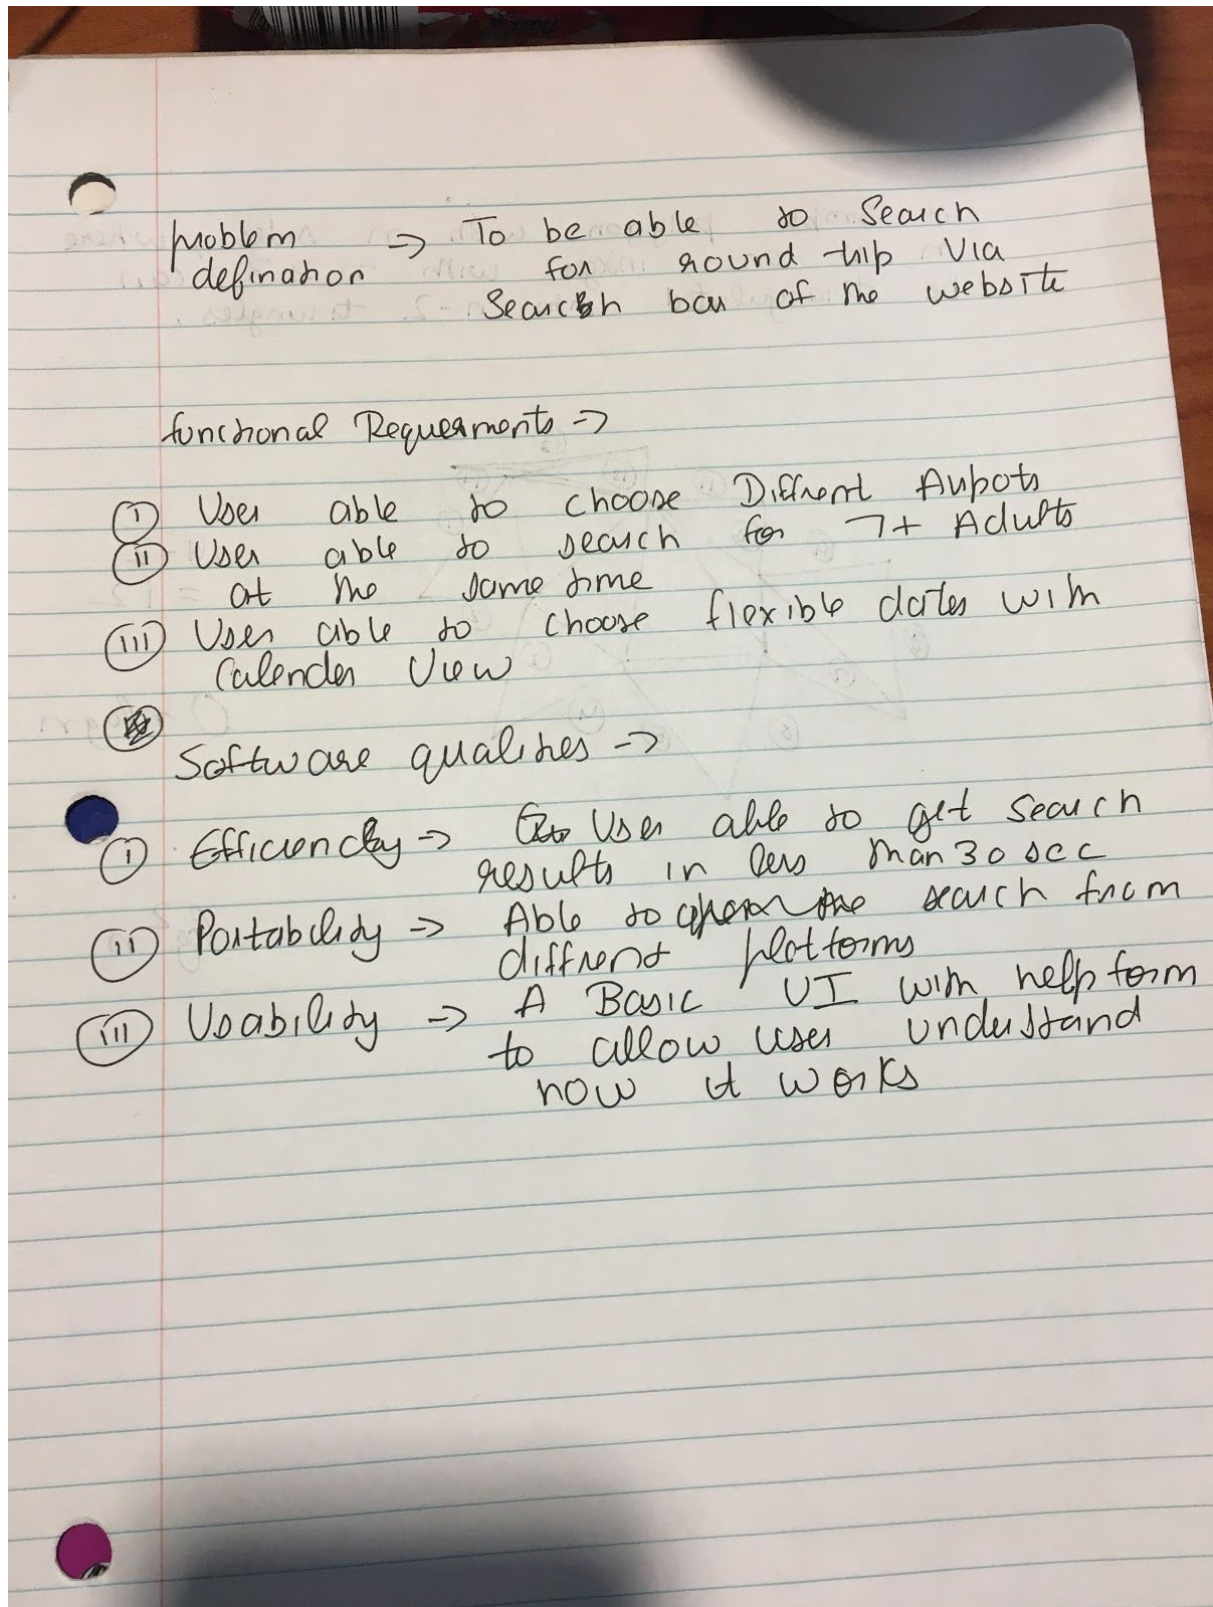 problem → To be able to Search
defination for round trip Via
Search bar of the website
functional Requerments →
(i) User able to choose Diffrent Airpots
(ii) User able to search for 7+ Adults
at the same time
(iii) User able to choose flexible dates with
Calender View
Software qualities →
(i) Efficiency → User able to get search
results in less than 30 sec
(ii) Portability → Able to the search from
diffrent platforms
(iii) Usability → A Basic UI with help form
to allow user understand
how it works